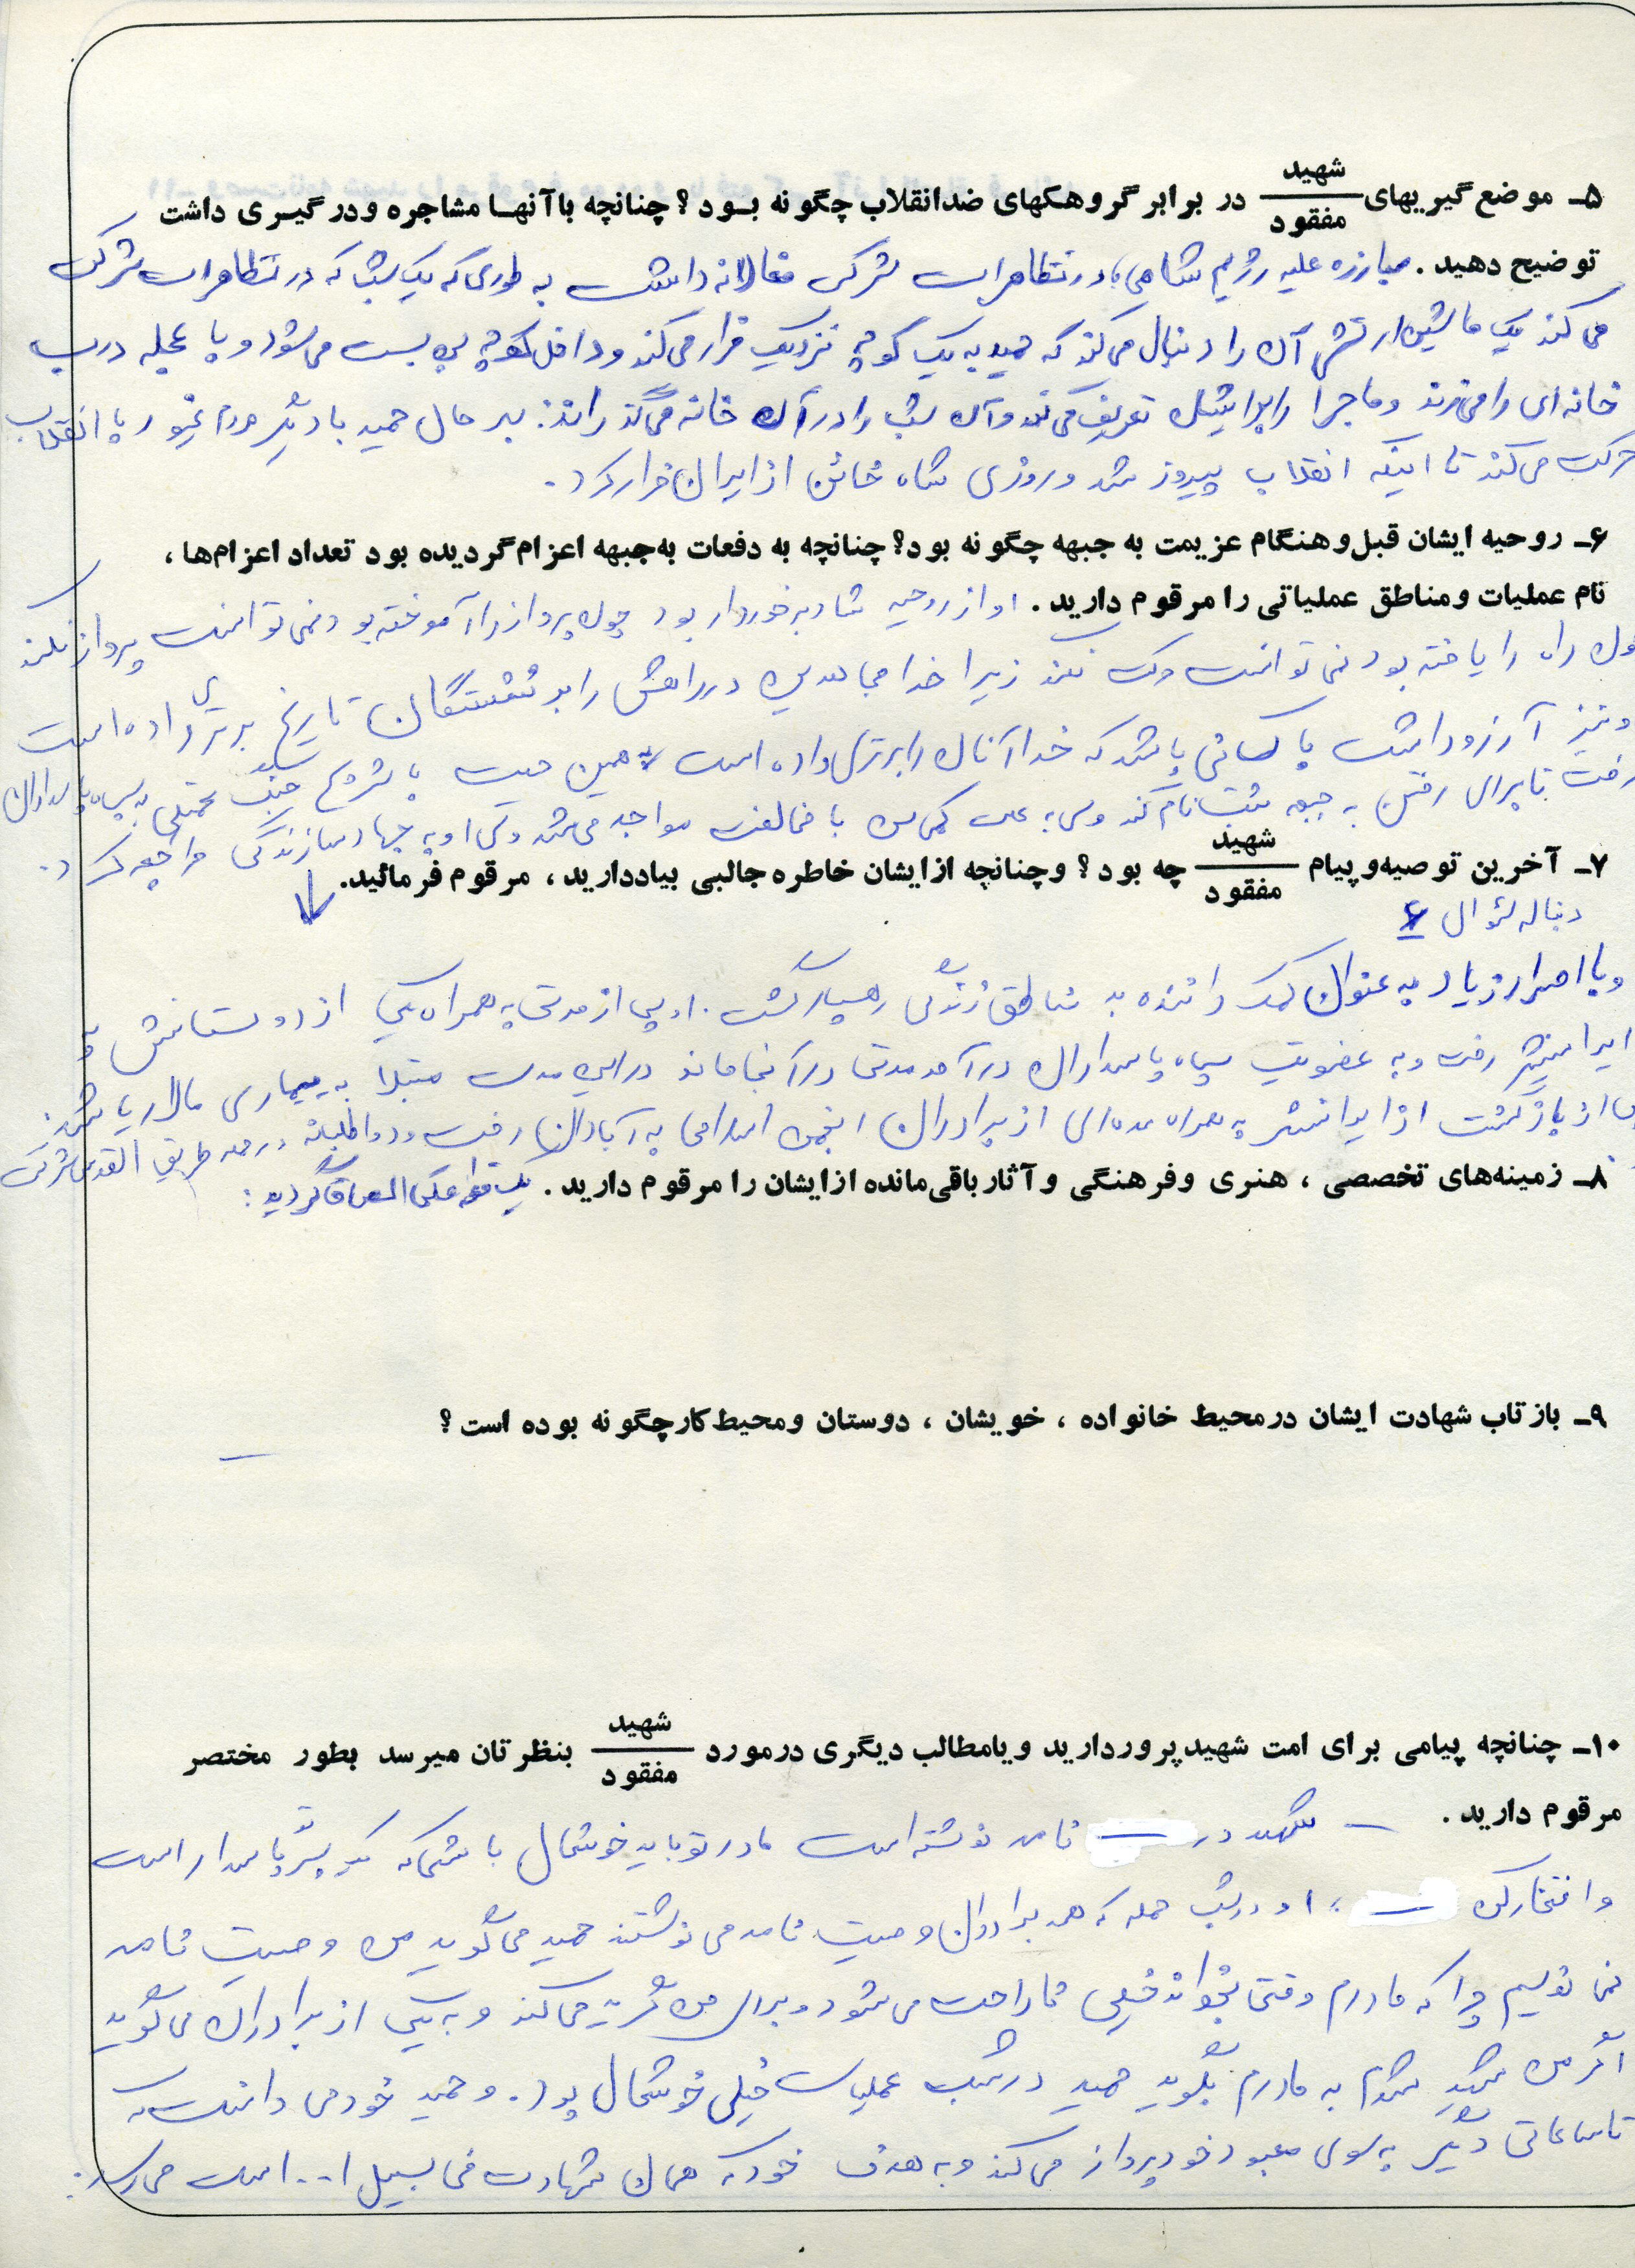 ۵ـ موضع گیریهای شهید/مفقود در برابر گروهکهای ضدانقلاب چگونه بود؟ چنانچه باآنها مشاجره ودرگیری داشت
توضیح دهید. مبارزه علیه رژیم شاهی، در تظاهرات شرکت فعالانه داشت به طوری که یک شب که در تظاهرات شرکت
می کند یک ماشین ارتش آن را دنبال می کند که حمید به یک کوچه نزدیک فرار می کند و داخل کوچه بن بست می شود و با عجله درب
خانه ای را می زند و ماجرا را برایشان تعریف می کند و آن شب را در آن خانه می گذراند. بهر حال حمید با دیگر مردم غیور با انقلاب
حرکت می کند تا اینکه انقلاب پیروز شد و روزی شاه خائن از ایران فرار کرد.
۶ـ روحیه ایشان قبل وهنگام عزیمت به جبهه چگونه بود؟ چنانچه به دفعات به جبهه اعزام گردیده بود تعداد اعزام ها،
نام عملیات ومناطق عملیاتی را مرقوم دارید. او از روحیه شاد برخوردار بود چون پرواز را آموخته بود نمی توانست پرواز نکند
چون راه را یافته بود نمی توانست حرکت نکند زیرا خدا مجاهدین در راهش را بر نشستگان تاریخ برتری داده است
و نیز آرزو داشت با کسانی باشد که خدا آنان را برتری داده است همین جهت با شروع جنگ تحمیلی به سپاه پاسداران
رفت تا برای رفتن به جبهه ثبت نام کند ولی به علت کمی سن با مخالفت مواجه می شد ولی او به جهاد سازندگی مراجعه کرد.
۷ـ آخرین توصیه وپیام شهید/مفقود چه بود؟ وچنانچه ازایشان خاطره جالبی بیاددارید، مرقوم فرمائید.
دنباله سؤال ۶
و با اصرار زیاد به عنوان کمک راننده به مناطق رهسپار گشت. او پس از مدتی به همراه یکی از دوستانش به
ایرانشهر رفت و به عضویت سپاه پاسداران درآمد مدتی در آنجا ماند در این مدت مبتلا به بیماری مالاریا شد.
پس از بازگشت از ایرانشهر به همراه عده ای از برادران انجمن اسلامی به آبادان رفت و داوطلبانه در حمله طریق القدس شرکت
۸ـ زمینه های تخصصی، هنری وفرهنگی و آثار باقی مانده ازایشان را مرقوم دارید. یک قطعه عکس الصاق گردید:
۹ـ بازتاب شهادت ایشان درمحیط خانواده، خویشان، دوستان ومحیط کار چگونه بوده است؟
ـــ
۱۰ـ چنانچه پیامی برای امت شهیدپرور دارید ویامطالب دیگری درمورد شهید/مفقود بنظرتان میرسد بطور مختصر
مرقوم دارید. ـ شهید در نامه نوشته است مادر تو باید خوشحال باشی که پسرت پاسدار است
و افتخار کن، او در شب حمله که همه برادران وصیت نامه می نوشتند حمید می گوید من وصیت نامه
نمی نویسم چرا که مادرم وقتی بخواند خیلی ناراحت می شود و برای من گریه می کند و به یکی از برادران می گوید
اگر من شهید شدم به مادرم بگوید حمید در شب عملیات خیلی خوشحال بود. و حمید خود می دانست که
تا ساعاتی دیگر به سوی معبود خود پرواز می کند و به هدف خود که همان شهادت فی سبیل ا... است می رسد.